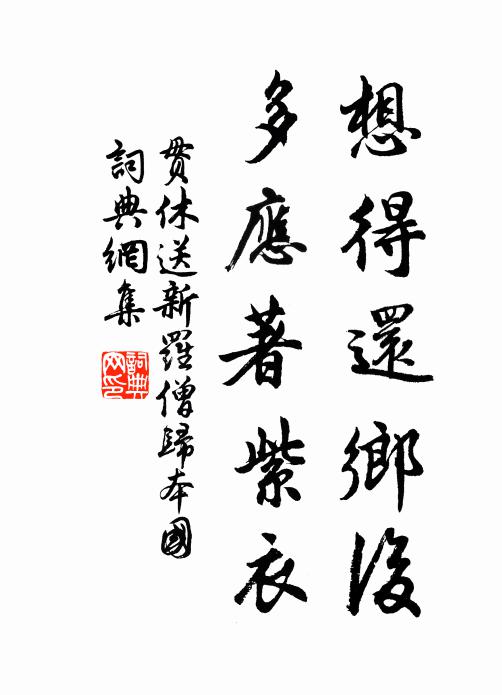 想得還鄉後
多應著紫衣
貫休送新羅僧歸本國
詞典網集
詞典網印